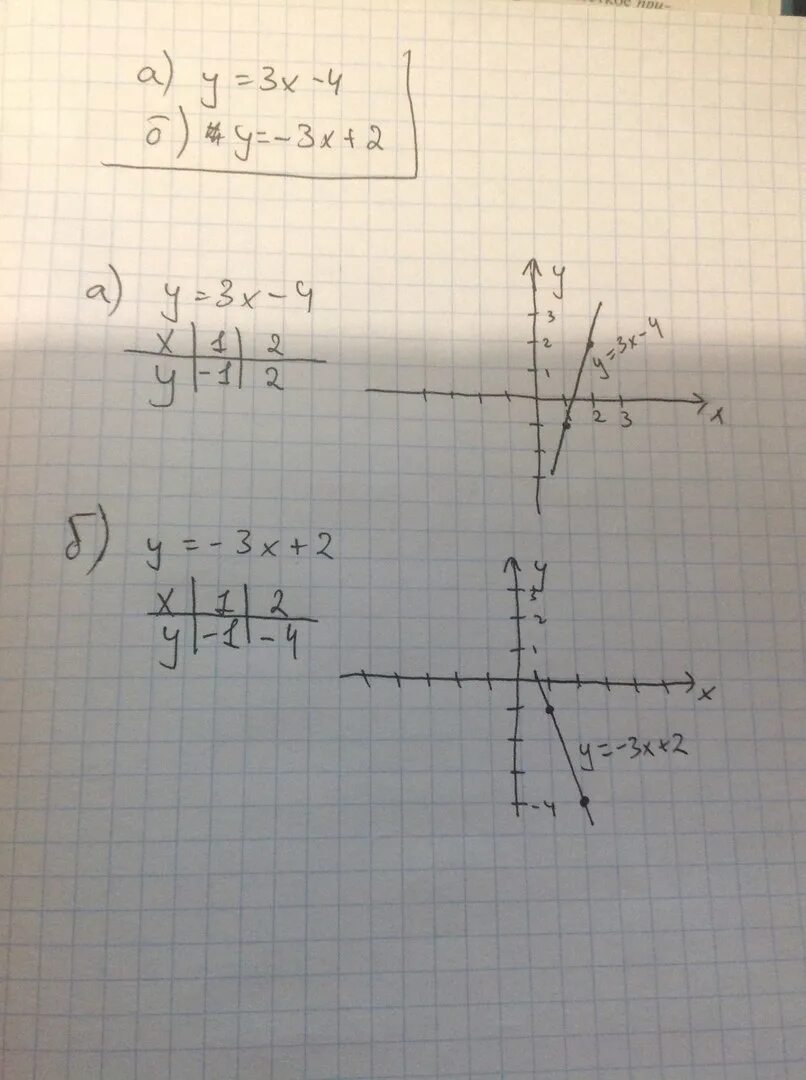 а) y = 3x - 4
б) y = - 3x + 2
а) y = 3x - 4
x | 1 | 2
y | -1 | 2
y
3
2
1
y = 3x - 4
2 3
x
б) y = - 3x + 2
x | 1 | 2
y | -1 | - 4
y
3
2
1
x
y = -3x+2
-4